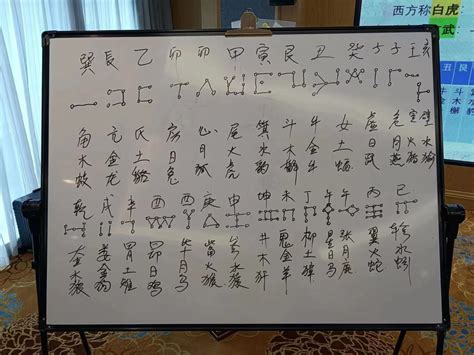 西方称白虎
武
丑 艮
牛 斗
金 木
巽 辰 乙 卯 卯 甲 寅 艮 丑 癸 子 子 壬 亥
角 亢 氐 房 心 尾 箕 斗 牛 女 虚 危 室 壁
水 金 土 日 月 火 水 木 金 土 日 月 火 水
龙 兔 狐 虎 豹 牛 燕
乾 戌 辛 酉 酉 庚 申 坤 未 丁 午 午 丙 巳
奎 娄 胃 昴 毕 觜 参 井 鬼 柳 星 张 翼 轸
金 土 日 月 火 水 木 金 土 日 月 火 水
狼 狗 雉 鸡 羊 獐 马 蛇 蚓